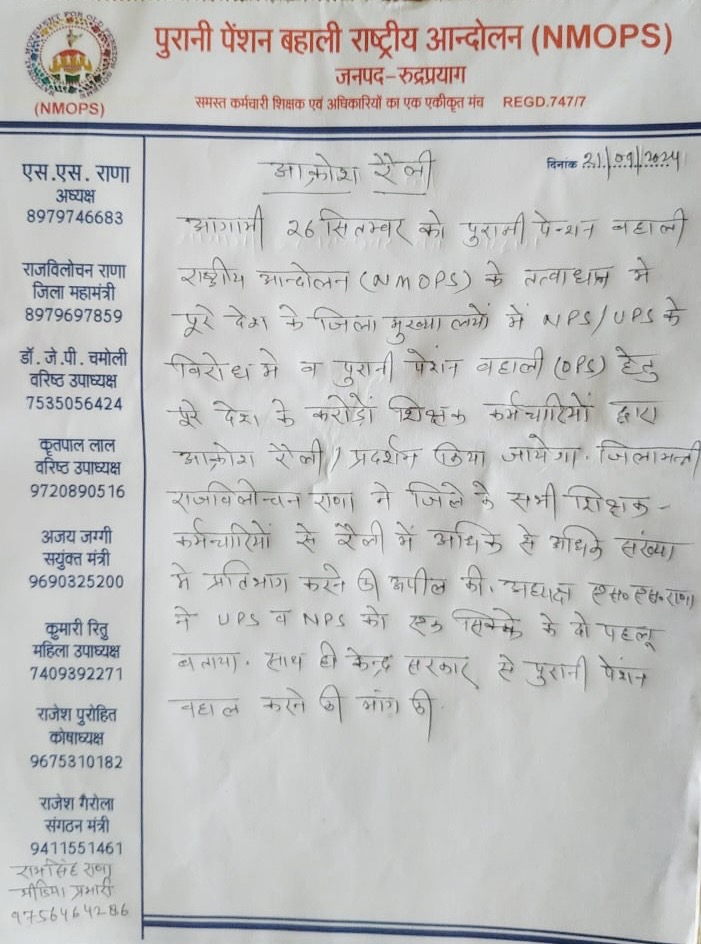 पुरानी पेंशन बहाली राष्ट्रीय आन्दोलन (NMOPS)
जनपद-रुद्रप्रयाग
समस्त कर्मचारी शिक्षक एवं अधिकारियों का एक एकीकृत मंच REGD.747/7
(NMOPS)
एस.एस. राणा
अध्यक्ष
8979746683
राजविलोचन राणा
जिला महामंत्री
8979697859
डॉ. जे.पी. चमोली
वरिष्ठ उपाध्यक्ष
7535056424
कृतपाल लाल
वरिष्ठ उपाध्यक्ष
9720890516
अजय जग्गी
सयुंक्त मंत्री
9690325200
कुमारी रितु
महिला उपाध्यक्ष
7409392271
राजेश पुरोहित
कोषाध्यक्ष
9675310182
राजेश गैरोला
संगठन मंत्री
9411551461
रामसिंह राणा
मीडिया प्रभारी
9756464286
दिनांक 21/09/2024
आक्रोश रैली
आगामी 26 सितम्बर को पुरानी पेन्शन बहाली
राष्ट्रीय आन्दोलन (NMOPS) के तत्वाधान मे
पूरे देश के जिला मुख्यालयों में NPS/UPS के
विरोध मे व पुरानी पेंशन बहाली (OPS) हेतु
पूरे देश के करोड़ों शिक्षक कर्मचारियों द्वारा
आक्रोश रैली/प्रदर्शन किया जायेगा. जिलामन्त्री
राजविलोचन राणा ने जिले के सभी शिक्षक-
कर्मचारियों से रैली में अधिक से अधिक संख्या
मे प्रतिभाग करने की अपील की. अध्यक्ष एस० एस० राणा
ने UPS व NPS को एक सिक्के के दो पहलू
बताया. साथ ही केन्द्र सरकार से पुरानी पेंशन
बहाल करने की मांग की.